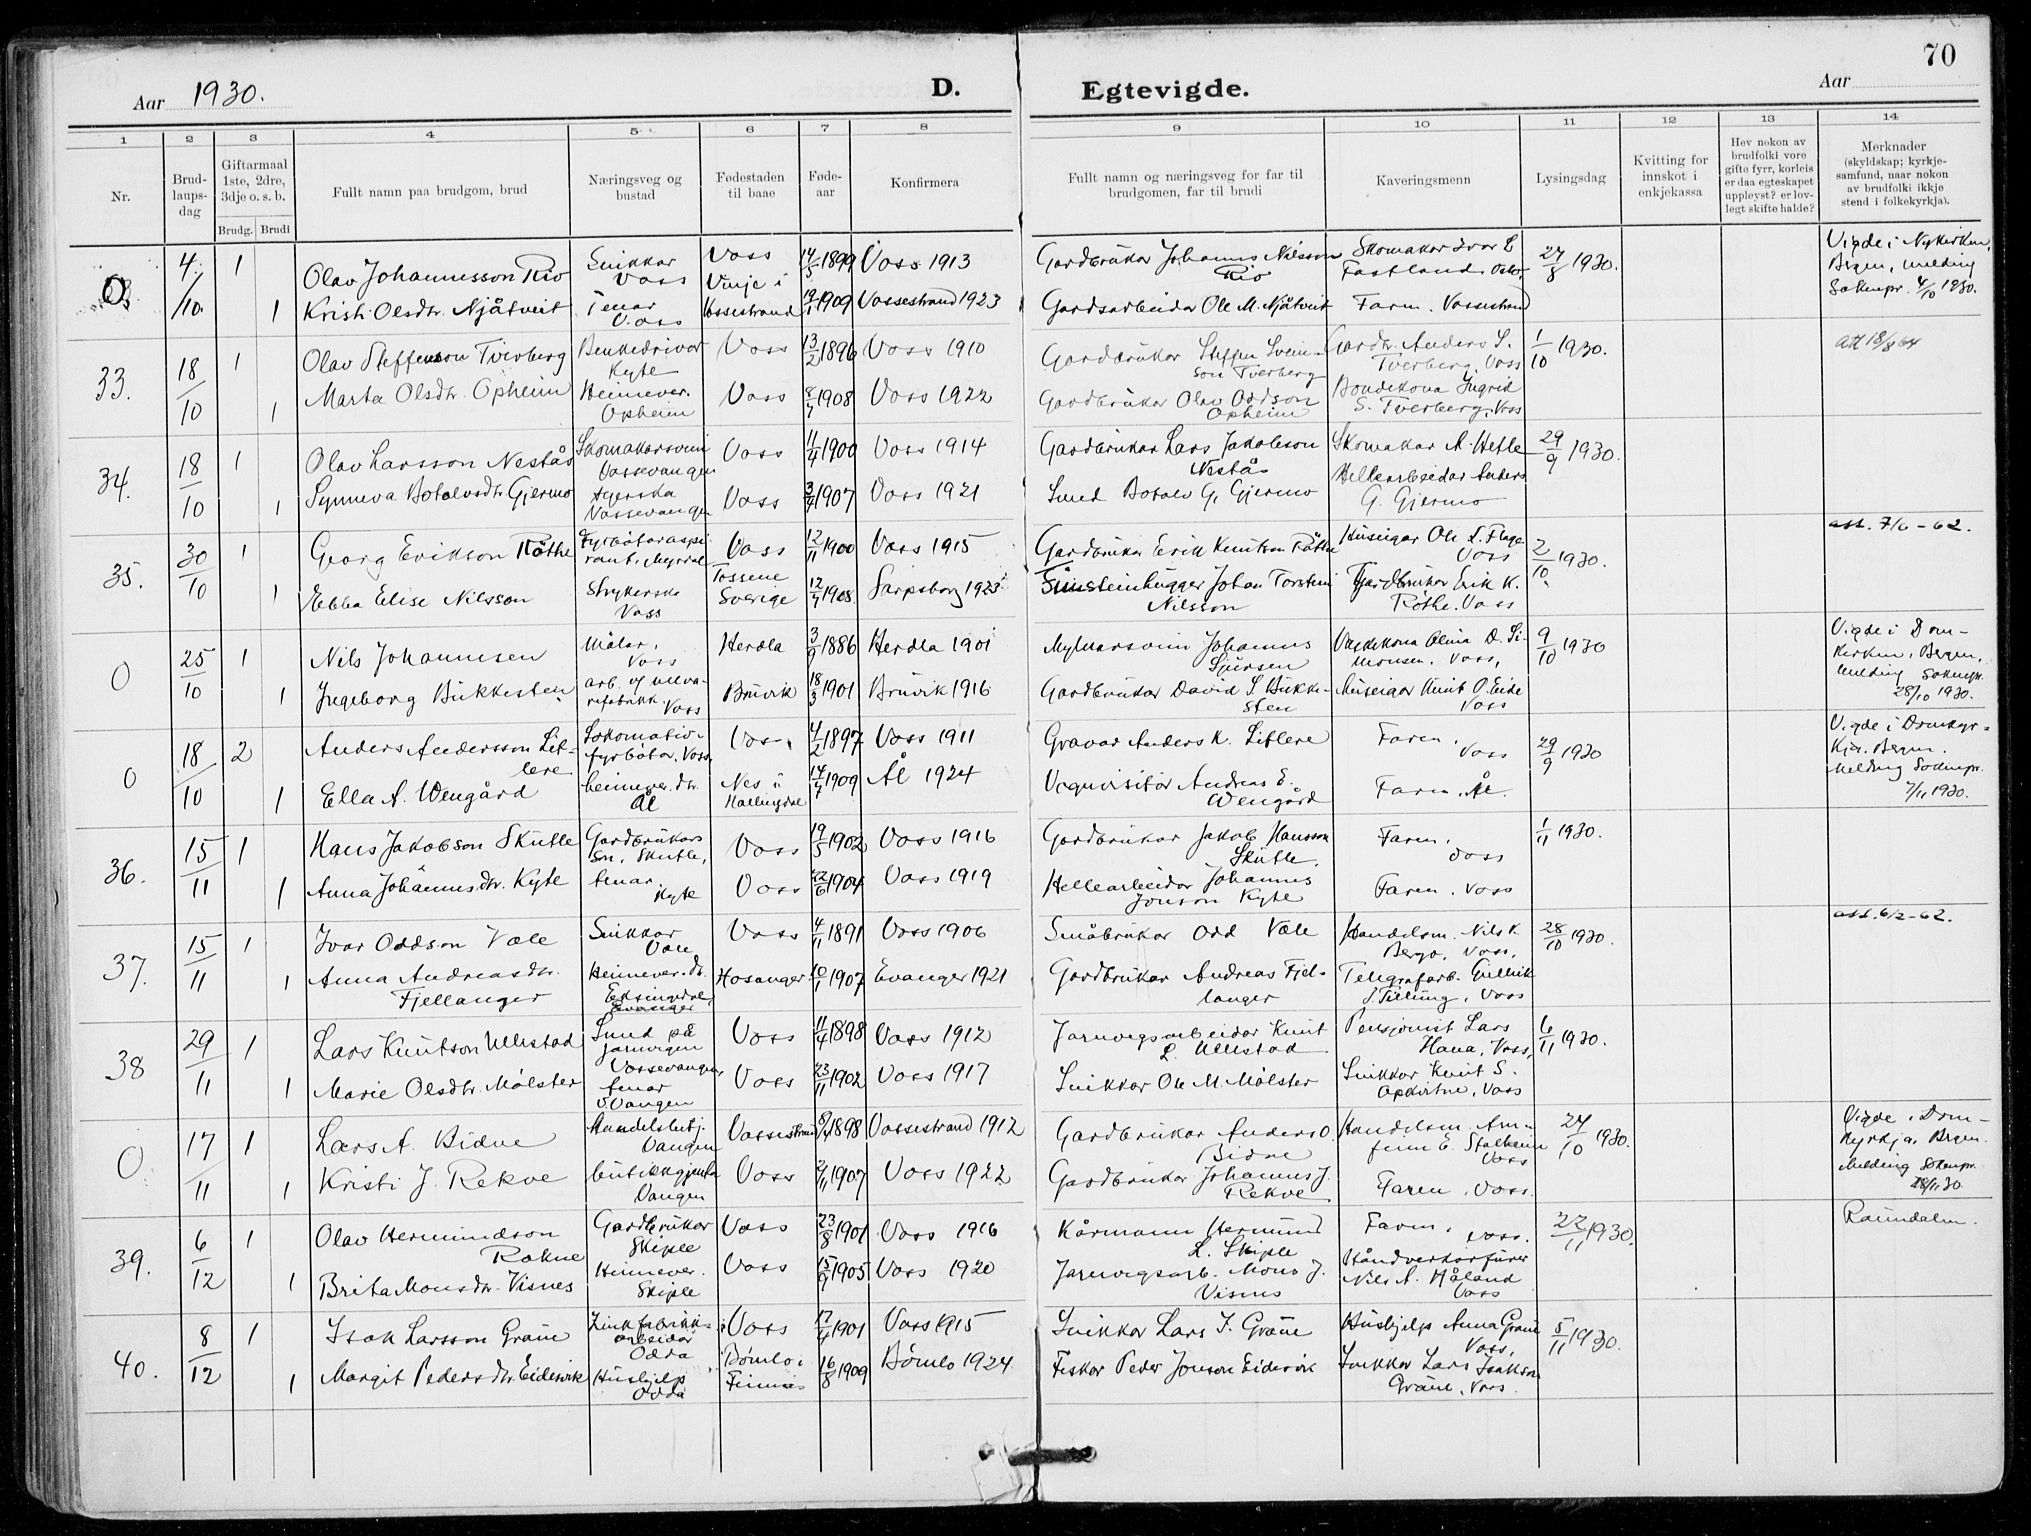 70
Aar 1930.
D. Egtevigde.
Aar
1 2 3 4 5 6 7 8 9 10 11 12 13 14
Nr.
Brud-
laups-
dag
Giftarmaal
1ste, 2dre,
3dje o. s. b.
Brudg. Brudi
Fullt namn paa brudgom, brud
Næringsveg og
bustad
Fødestaden
til baae
Føde-
aar
Konfirmera
Fullt namn og næringsveg for far til
brudgomen, far til brudi
Kaveringsmenn
Lysingsdag
Kvitting for
innskot i
enkjekassa
Hev nokon av
brudfolki vore
gifte fyrr, korleis
er daa egteskapet
uppleyst? er lov-
legt skifte halde?
Merknader
(skyldskap; kyrkje-
samfund, naar nokon
av brudfolki ikkje
stend i folkekyrkja).
0 4/10. 1 Olav Johannesson Rio Snikkar Voss Voss 14/5 1899 Voss 1913 Gardbrukar Johannes Nilsson Rio Skomakar Ivar E Fastland 27/8 1930. Vigde i Nykirken, Bergen, melding Soknepr. 4/10 1930.
1 Kristi Olsdtr. Njåtveit Tenar Voss Vinje i Vossestrand 1909 Vossestrand 1923 Gardsarbeidar Ole M. Njåtveit Faren. Vossestrand
33. 18/10 1 Olav Steffenson Tverberg Benkedrivar Kyte Voss 13/2 1896 Voss 1910 Gardbrukar Steffen Sveinson Tverberg Gardbr. Anders S. Tverberg, Voss 1/10 1930. att 18/8 64
1 Marta Olsdtr. Opheim Heimever. Opheim Voss 1908 Voss 1922 Gardbrukar Olav Oddson Opheim Bondekona Ingrid S. Tverberg, Voss
34. 18/10 1 Olav Larsson Nestås Skomakarsvein Vossevangen Voss 11/4 1900 Voss 1914 Gardbrukar Lars Jakobson Nestås Skomakar A. Hefle 29/9 1930.
1 Synneva Botolvsdtr. Gjermo Vossevangen Voss 1907 Voss 1921 Smed Botolv G. Gjermo Hellearbeidar Anders G. Gjermo
35. 30/10 1 Georg Erikson Røthe Fyrbøtaraspirant, Myrdal Voss 12/11 1900 Voss 1915 Gardbrukar Erik Knutson Røthe Huseigar Ole L. Flage Voss 2/10 1930. att. 7/6-62.
1 Ebba Elise Nilsson Strykerske Voss Tossene Sverige 12/7 1908. Sarpsborg 1923 Steinhugger Johan Torstein Nilsson Gardbrukar Erik K. Røthe. Voss
0 25/10 1 Nils Johannesen Målar, Voss Herdla 3/9 1886 Herdla 1901 Johannes Sjursen Olina D. Simonsen. Voss, 9/10 1930 Vigde i Domkirken, Bergen, Melding Soknepr. 28/10 1930.
1 Ingeborg Bukkesten Voss Bruvik 18/3 1901 Bruvik 1916 Gardbrukar David S Bukkesten Huseigar Knut O. Eide Voss
0 18/10 2 Anders Andersson Litlere Lokomotivfyrbøtar, Voss. Voss 4/2 1897 Voss 1911 Gravar Anders K. Litlere Faren. Voss 29/9 1930 Vigde i Domkyrkja. Bergen. Melding Soknepr. 7/11 1930.
1 Ella A. Wengård heimever. dtr. Ål Nes i Hallingdal 14/7 1909 Ål 1924 Andreas E. Wengård Faren. Ål.
36. 15/11 1 Hans Jakobson Skutle Gardbrukarson. Skutle, Voss 19/5 1902 Voss 1916 Gardbrukar Jakob Hansson Skutle. Faren. Voss 1/11 1930.
1 Anna Johannesdtr. Kyte tenar, Kyte Voss 22/6 1904 Voss 1919 Hellearbeidar Johannes Jonson Kyte Faren. Voss
37. 15/11 1 Ivar Oddson Væle Snikkar Væle Voss 4/11 1891 Voss 1906 Småbrukar Odd Væle Handelsm. Nils K. Bergo, Voss, 28/10 1930. att. 6/2-62.
1 Anna Andreasdtr. Fjellanger Heimever. dtr. Eksingedal, Evanger Hosanger 1907 Evanger 1921 Gardbrukar Andreas Fjellanger Telegrafarb. Gullik S. Tillung, Voss
38 29/11 1 Lars Knutson Ullestad Smed på jarnvegen Vossevangen, Voss 11/4 1898 Voss 1912 Jarnvegsarbeidar Knut L. Ullestad Pensjonist Lars Hana, Voss, 6/11 1930.
1 Marie Olsdtr. Mølster tenar Vangen Voss 23/11 1902 Voss 1917 Snikkar Ole M. Mølster Snikkar Knut S. Voss
0 17/11 1 Lars A. Bidne Handelsbetj. Vangen Vossestrand 8/4 1898 Vossestrand 1912 Gardbrukar Anders O. Bidne Handelsm. Arnfinn E. Stalheim Voss 24/10 1930. Vigde i Domkyrkja, Bergen. Melding Soknepr. 18/11 30.
1 Kristi J. Rekve butikkgjenta Vangen Voss 1907 Voss 1922 Gardbrukar Johannes J. Rekve Faren. Voss.
39. 6/12 1 Olav Hermundson Rokne Gardbrukar Skiple Voss 23/8 1901 Voss 1916 Kårmann Hermund L. Skiple Faren. Voss. 22/11 1930. Raundalen.
1 Brita Monsdtr. Visnes Heimever. Skiple Voss 15/9 1905 Voss 1920 Jarnvegsarb. Mons J. Visnes Håndverkarfører Nils A. Håland Voss
40. 8/12 1 Isak Larsson Græue Zinkfabrikkarbeidar Odda Voss 1901 Voss 1915 Snikkar Lars I. Græue Hushjelp Anna Græue Voss, 5/11 1930.
1 Margit Pedersdtr. Eidesvik Hushjelp Odda Bømlo i Finnås 16/8 1909 Bømlo 1924 Fiskar Peder Jonson Eidesvik Snikkar Lars Isakson Græue, Voss.